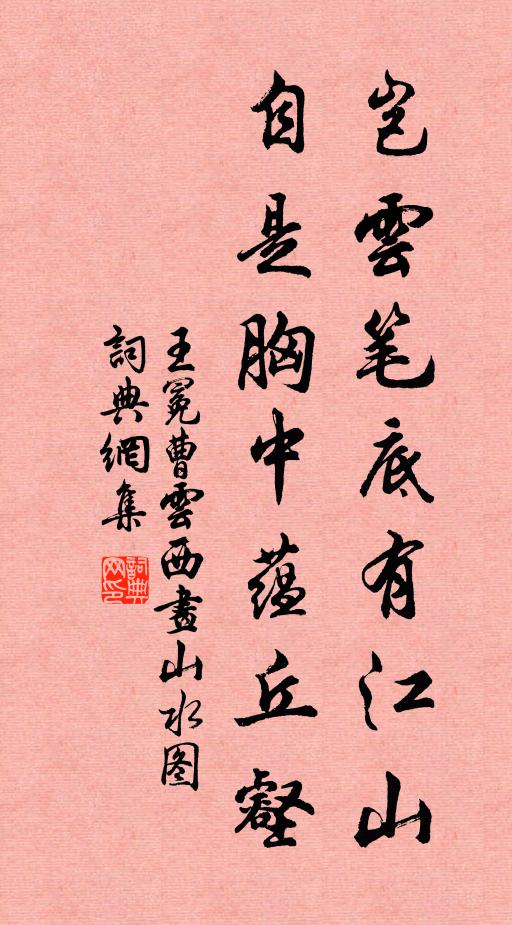 岂雲笔底有江山
自是胸中蕴丘壑
王冕曹雲西畫山水图
詞典網集
詞典网印